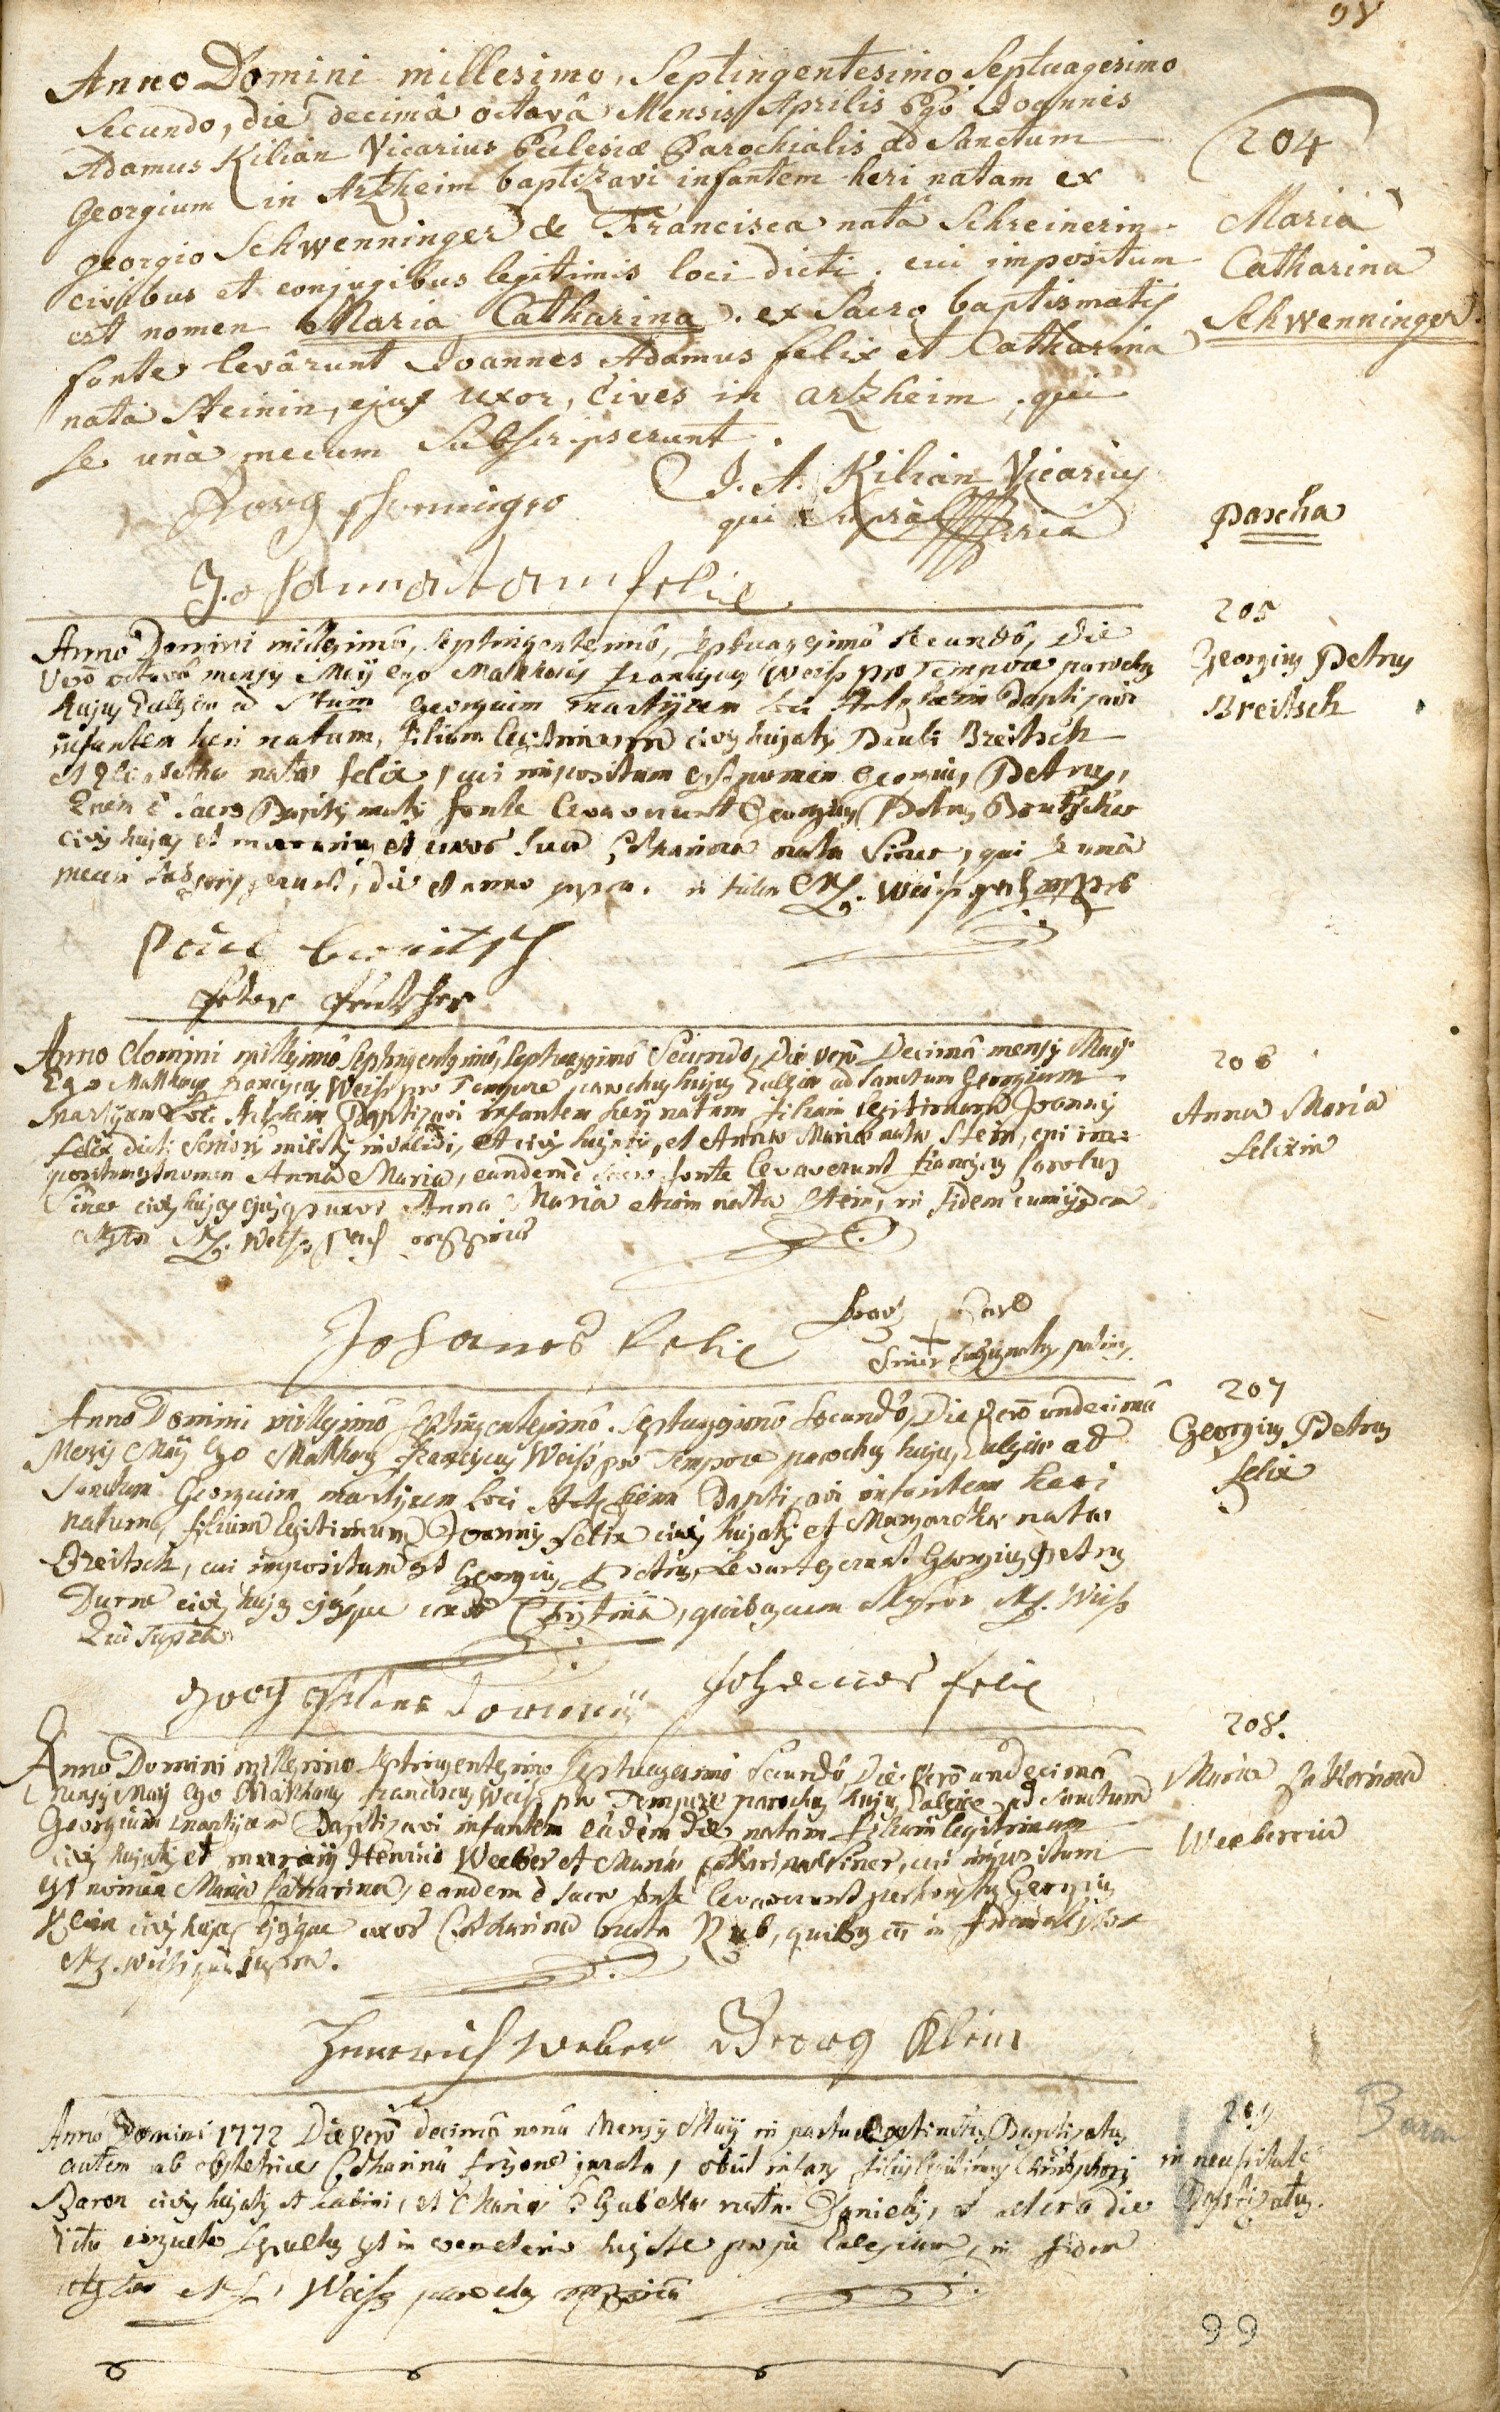 98
Anno Domini millesimo, Septingentesimo Septuagesimo
Secundo, die decimâ octavâ Mensis Aprilis Ego Joannes
Adamus Kilian Vicarius Ecclesiæ Parochialis ad Sanctum
Georgium in Artzheim baptizavi infantem heri natam ex
georgio Schwenninger & Francisca natâ Schreinerin
civibus et conjugibus legitimis loci dicti, cui impositum
est nomen Maria Catharina. ex Sacro baptismatis
fonte levârunt Joannes Adamus felix et Catharina
nata Steinin, ejus uxor, Cives in artzheim, qui
se unà mecum Subscripserunt.
J. A. Kilian Vicarius
qui Suprà
204
Maria
Catharina
Schwenninger.
Pascha
Anno Domini millesimô, septingentesimô, septuagesimô secundô, Die
Verò octavâ mensis Maij ego Matthæus franciscus Weiss pro Tempore parochus
hujus Ecclesiæ ad Stum Georgium martyrem loci Artzheim Baptizavi
infantem heri natum, filium legitimum civis hujatis Pauli Breitsch
et Elisabethæ natæ felix, cui impositum est nomen Georgius Petrus,
Quem è sacro Baptismatis fonte levaverunt Georgius Petrus
civis hujas et uxor sua Catharina nata Siner, qui se unâ
mecum subscripserunt, die et anno supra. in fidem M. F. Weiss
205
Georgius Petrus
Breitsch
Anno Domini millesimô Septingentesimô, Septuagesimô Secundô, Die verò Decimâ mensis Maij
Ego Matthæus franciscus Weiss pro Tempore parochus hujus Ecclesiæ ad Sanctum Georgium
martyrem Loci Artzheim Baptizavi infantem heri natam filiam legitimam Joannis
felix dicti Senioris militis invalidi, et civis hujatis, et Annæ Mariæ natæ Stein, cui im-
positum est nomen Anna Maria, eandem è sacro fonte levaverunt franciscus Carolus
Siner civis hujas ejusque uxor Anna Maria etiam nata Stein, in fidem cum iisdem
M. F. Weiss
Johanes Felix
206
Anna Maria
felixin
Anno Domini millesimô Septingentesimô Septuagesimô secundô, Die verò undecimâ
Mensis Maij Ego Matthæus franciscus Weiss pro Tempore parochus hujus Ecclesiæ ad
Sanctum Georgium martyrem Loci Artzheim Baptizavi infantem heri
natum, filium legitimum Joannis felix civis hujatis et Margarethæ natæ
Breitsch, cui impositum est Georgius Petrus, Levarunt Georgius Petrus
civis hujas ejusque uxor Christina, quibuscum M. F. Weiss
Qui supra
Johannes felix
207
Georgius Petrus
felix
Anno Domini millesimo septingentesimo septuagesimo secundô, Die Verò undecimâ
Mensis Maij Ego Matthæus franciscus Weiss pro Tempore parochus hujus Ecclesiæ ad Sanctum
Georgium martyrem Baptizavi infantem eâdem die natam filiam legitimam
civis hujatis et Henrici Weeber et Mariæ Catharinæ Siner, cui impositum
est nomen Maria Catharina, eandem è sacro fonte levaverunt Georgius
Klein civis hujas ejusque uxor Catharina nata Rub, quibus cum in fidem
M. F. Weiss qui supra.
Henrich Weber Georg Klein
208.
Maria Catharina
Weeberin
Anno Domini 1772 Die verò decimâ nonâ Mensis Maij in partu Baptizatus
autem ab obstetrice Catharina jurata, obiit infans filius legitimus Christophori
Baron civis hujatis et Mariæ Elisabethæ natæ Danielis, et altera die
ritu consueto sepultus est in cemeterio prope Ecclesiam, in fidem
M. F. Weiss parochus
209
in necessitate
Baptizatus.
Baron
99